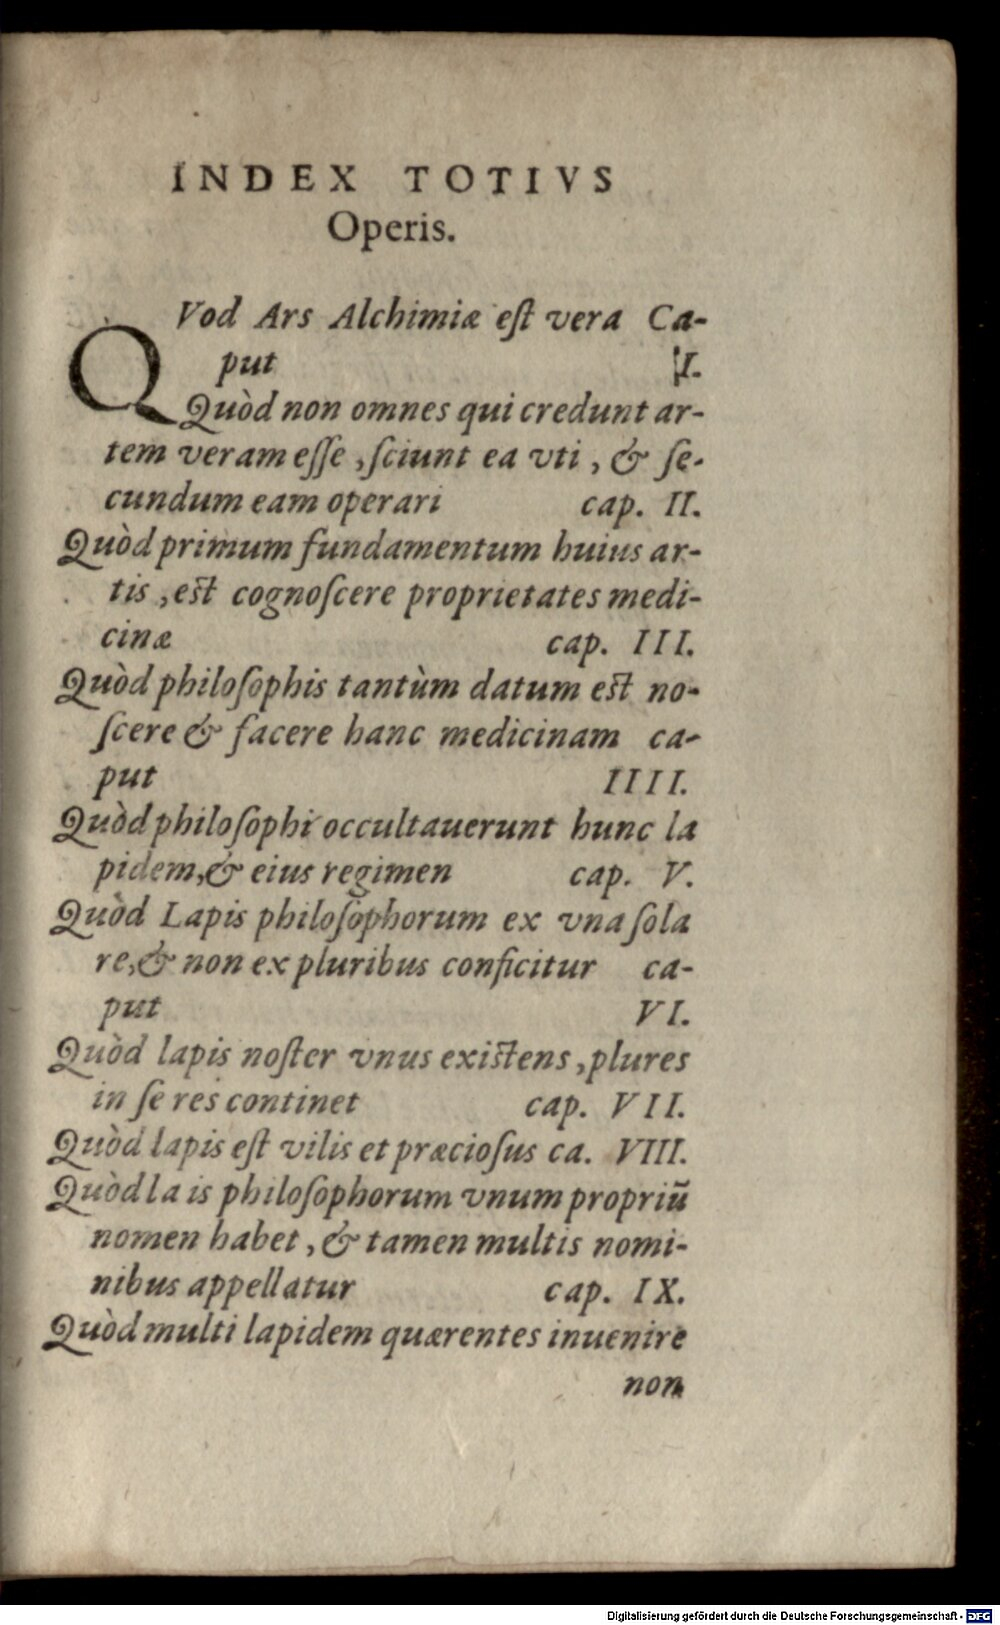 INDEX TOTIVS
Operis.
QVod Ars Alchimiæ eſt vera Ca-
put I.
Quòd non omnes qui credunt ar-
tem veram eſſe, ſciunt ea vti, & ſe-
cundum eam operari cap. II.
Quòd primum fundamentum huius ar-
tis, est cognoſcere proprietates medi-
cinæ cap. III.
Quòd philoſophis tantùm datum est no-
ſcere & facere hanc medicinam ca-
put IIII.
Quòd philoſophi occultauerunt hunc la
pidem, & eius regimen cap. V.
Quòd Lapis philoſophorum ex vna ſola
re, & non ex pluribus conficitur ca-
put VI.
Quòd lapis noſter vnus existens, plures
in ſe res continet cap. VII.
Quòd lapis eſt vilis et præcioſus ca. VIII.
Quòd la is philoſophorum vnum propriũ
nomen habet, & tamen multis nomi-
nibus appellatur cap. IX.
Quòd multi lapidem quærentes inuenire
non
Digitalisierung gefördert durch die Deutsche Forschungsgemeinschaft - DFG